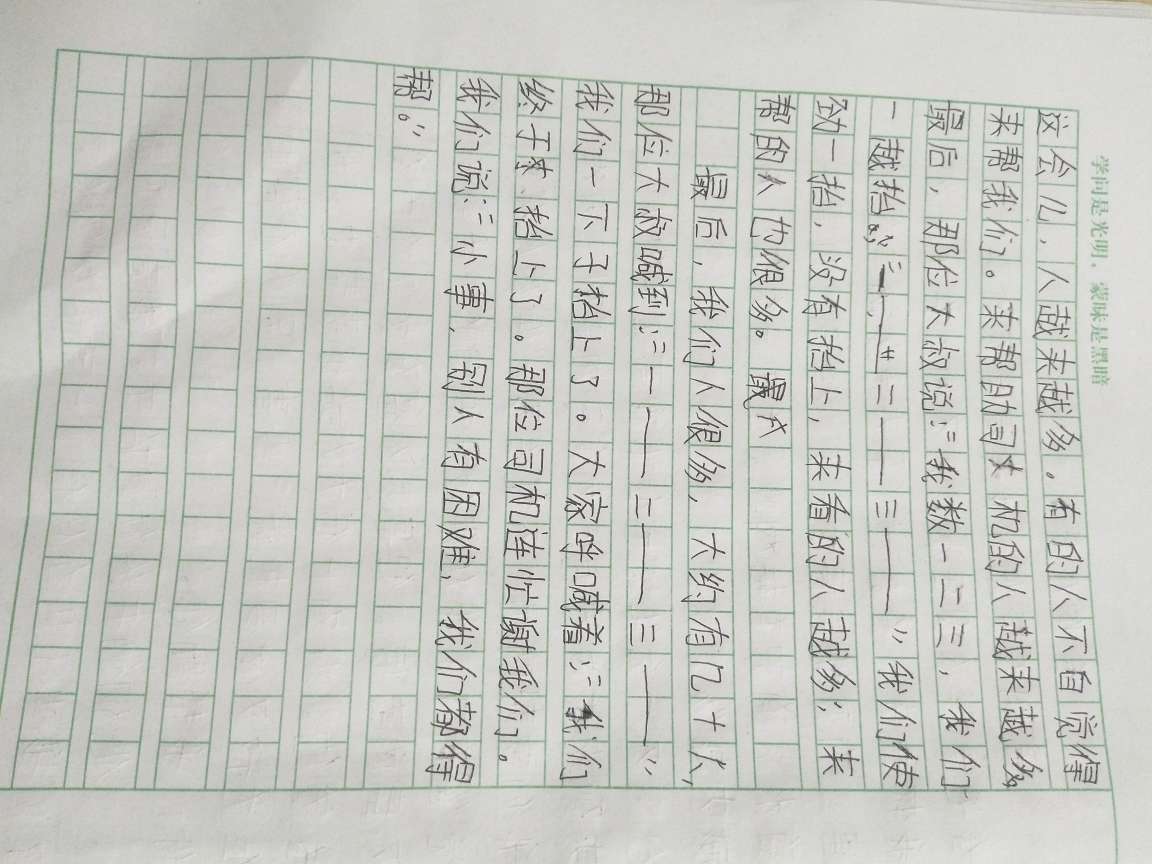 学问是光明，蒙昧是黑暗
这会儿，人越来越多。有的人不自觉得
来帮我们。来帮助司机的人越来越多
最后，那位大叔说：“我数一二三，我们
一越抬。”“一——二——三——”我们使
劲一抬，没有抬上，来看的人越多，来
帮的人也很多。最
最后，我们人很多，大约有几十人，
那位大叔喊到：“一——二——三——”
我们一下子抬上了。大家呼喊着：“我们
终于抬上了。那位司机连忙谢我们。
我们说：“小事，别人有困难，我们都得
帮。”